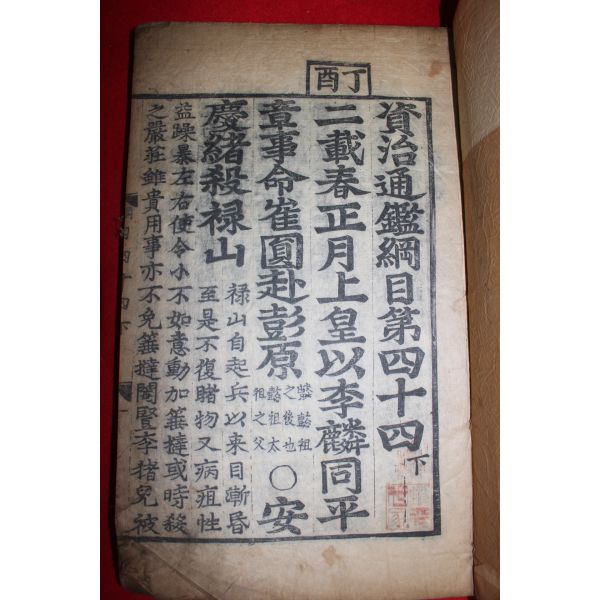 丁酉
資治通鑑綱目第四十四下
二載春正月上皇以李麟同平
章事命崔圓赴彭原
懿祖
之後也
懿祖太
祖之父
○安
慶緒殺祿山
祿山自起兵以来目漸昏
至是不復睹物又病疽性
益躁暴左右使令小不如意動加箠撻或時殺
之嚴莊雖貴用事亦不免箠撻閹豎李猪兒被